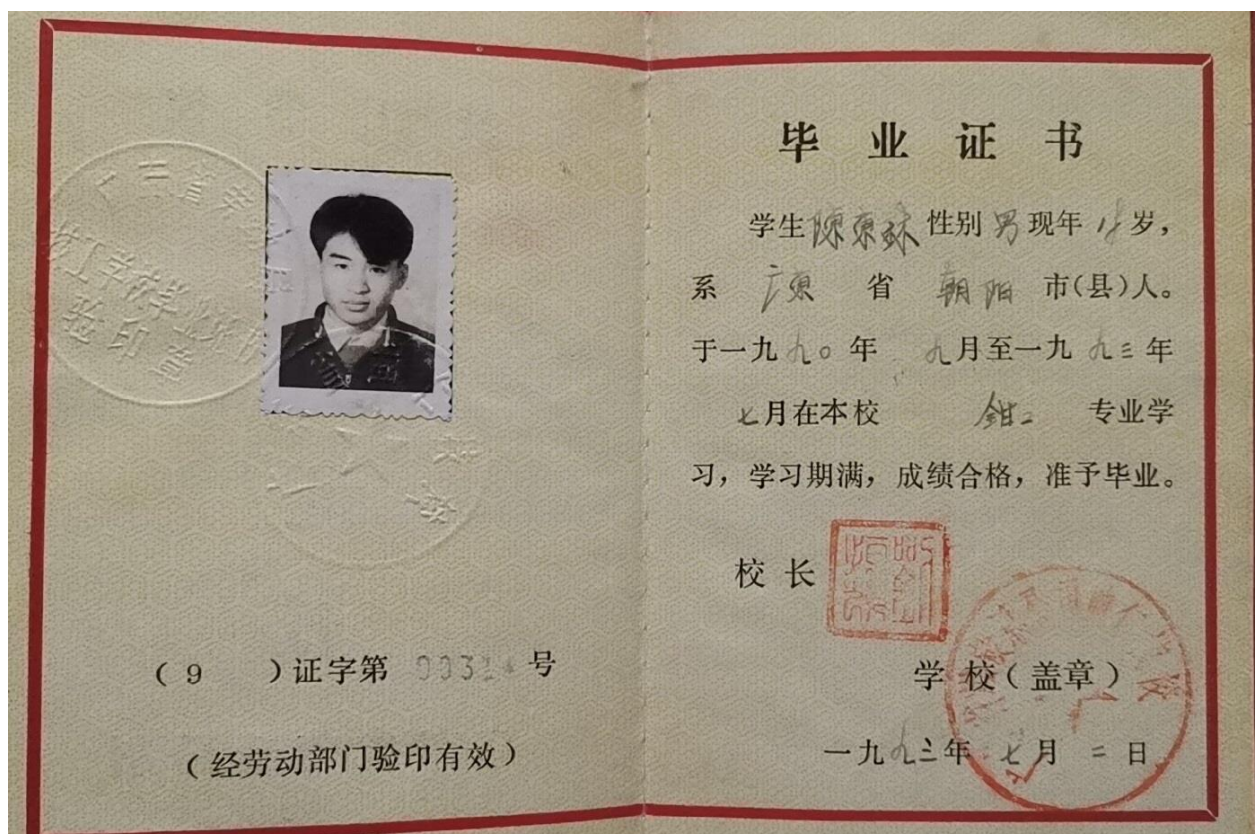 技工学校毕业证
验印章
(9 )证字第 号
(经劳动部门验印有效)
毕业证书
学生陳 性别男现年 岁,
系 广東 省 朝阳 市(县)人。
于一九九〇年 九月至一九九三年
七月在本校 钳工 专业学
习,学习期满,成绩合格,准予毕业。
校长
学校(盖章)
一九九三年七月二日